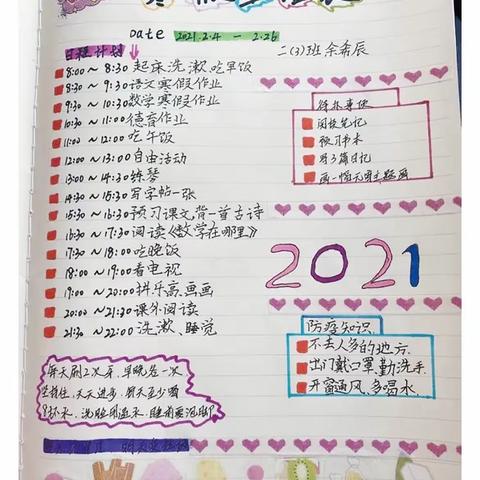 Date 2021.2.4 — 2.26
二(3)班 余希辰
日程计划
8:00~8:30 起床洗漱吃早饭
8:30~9:30 语文寒假作业
9:30~10:30 数学寒假作业
10:30~11:00 德育作业
11:00~12:00 吃午饭
12:00~13:00 自由活动
13:00~14:30 练琴
14:30~15:30 写字帖一张
15:30~16:30 预习课文,背一首古诗
16:30~17:30 阅读《数学在哪里》
17:30~18:00 吃晚饭
18:00~19:00 看电视
19:00~20:00 拼乐高,画画
20:00~21:30 课外阅读
21:30~22:00 洗漱、睡觉
待办事项
阅读笔记
预习书本
写3篇日记
2021
防疫知识
不去人多的地方.
出门戴口罩,勤洗手.
开窗通风,多喝水.
每天刷2次牙,早晚各一次
8杯水.